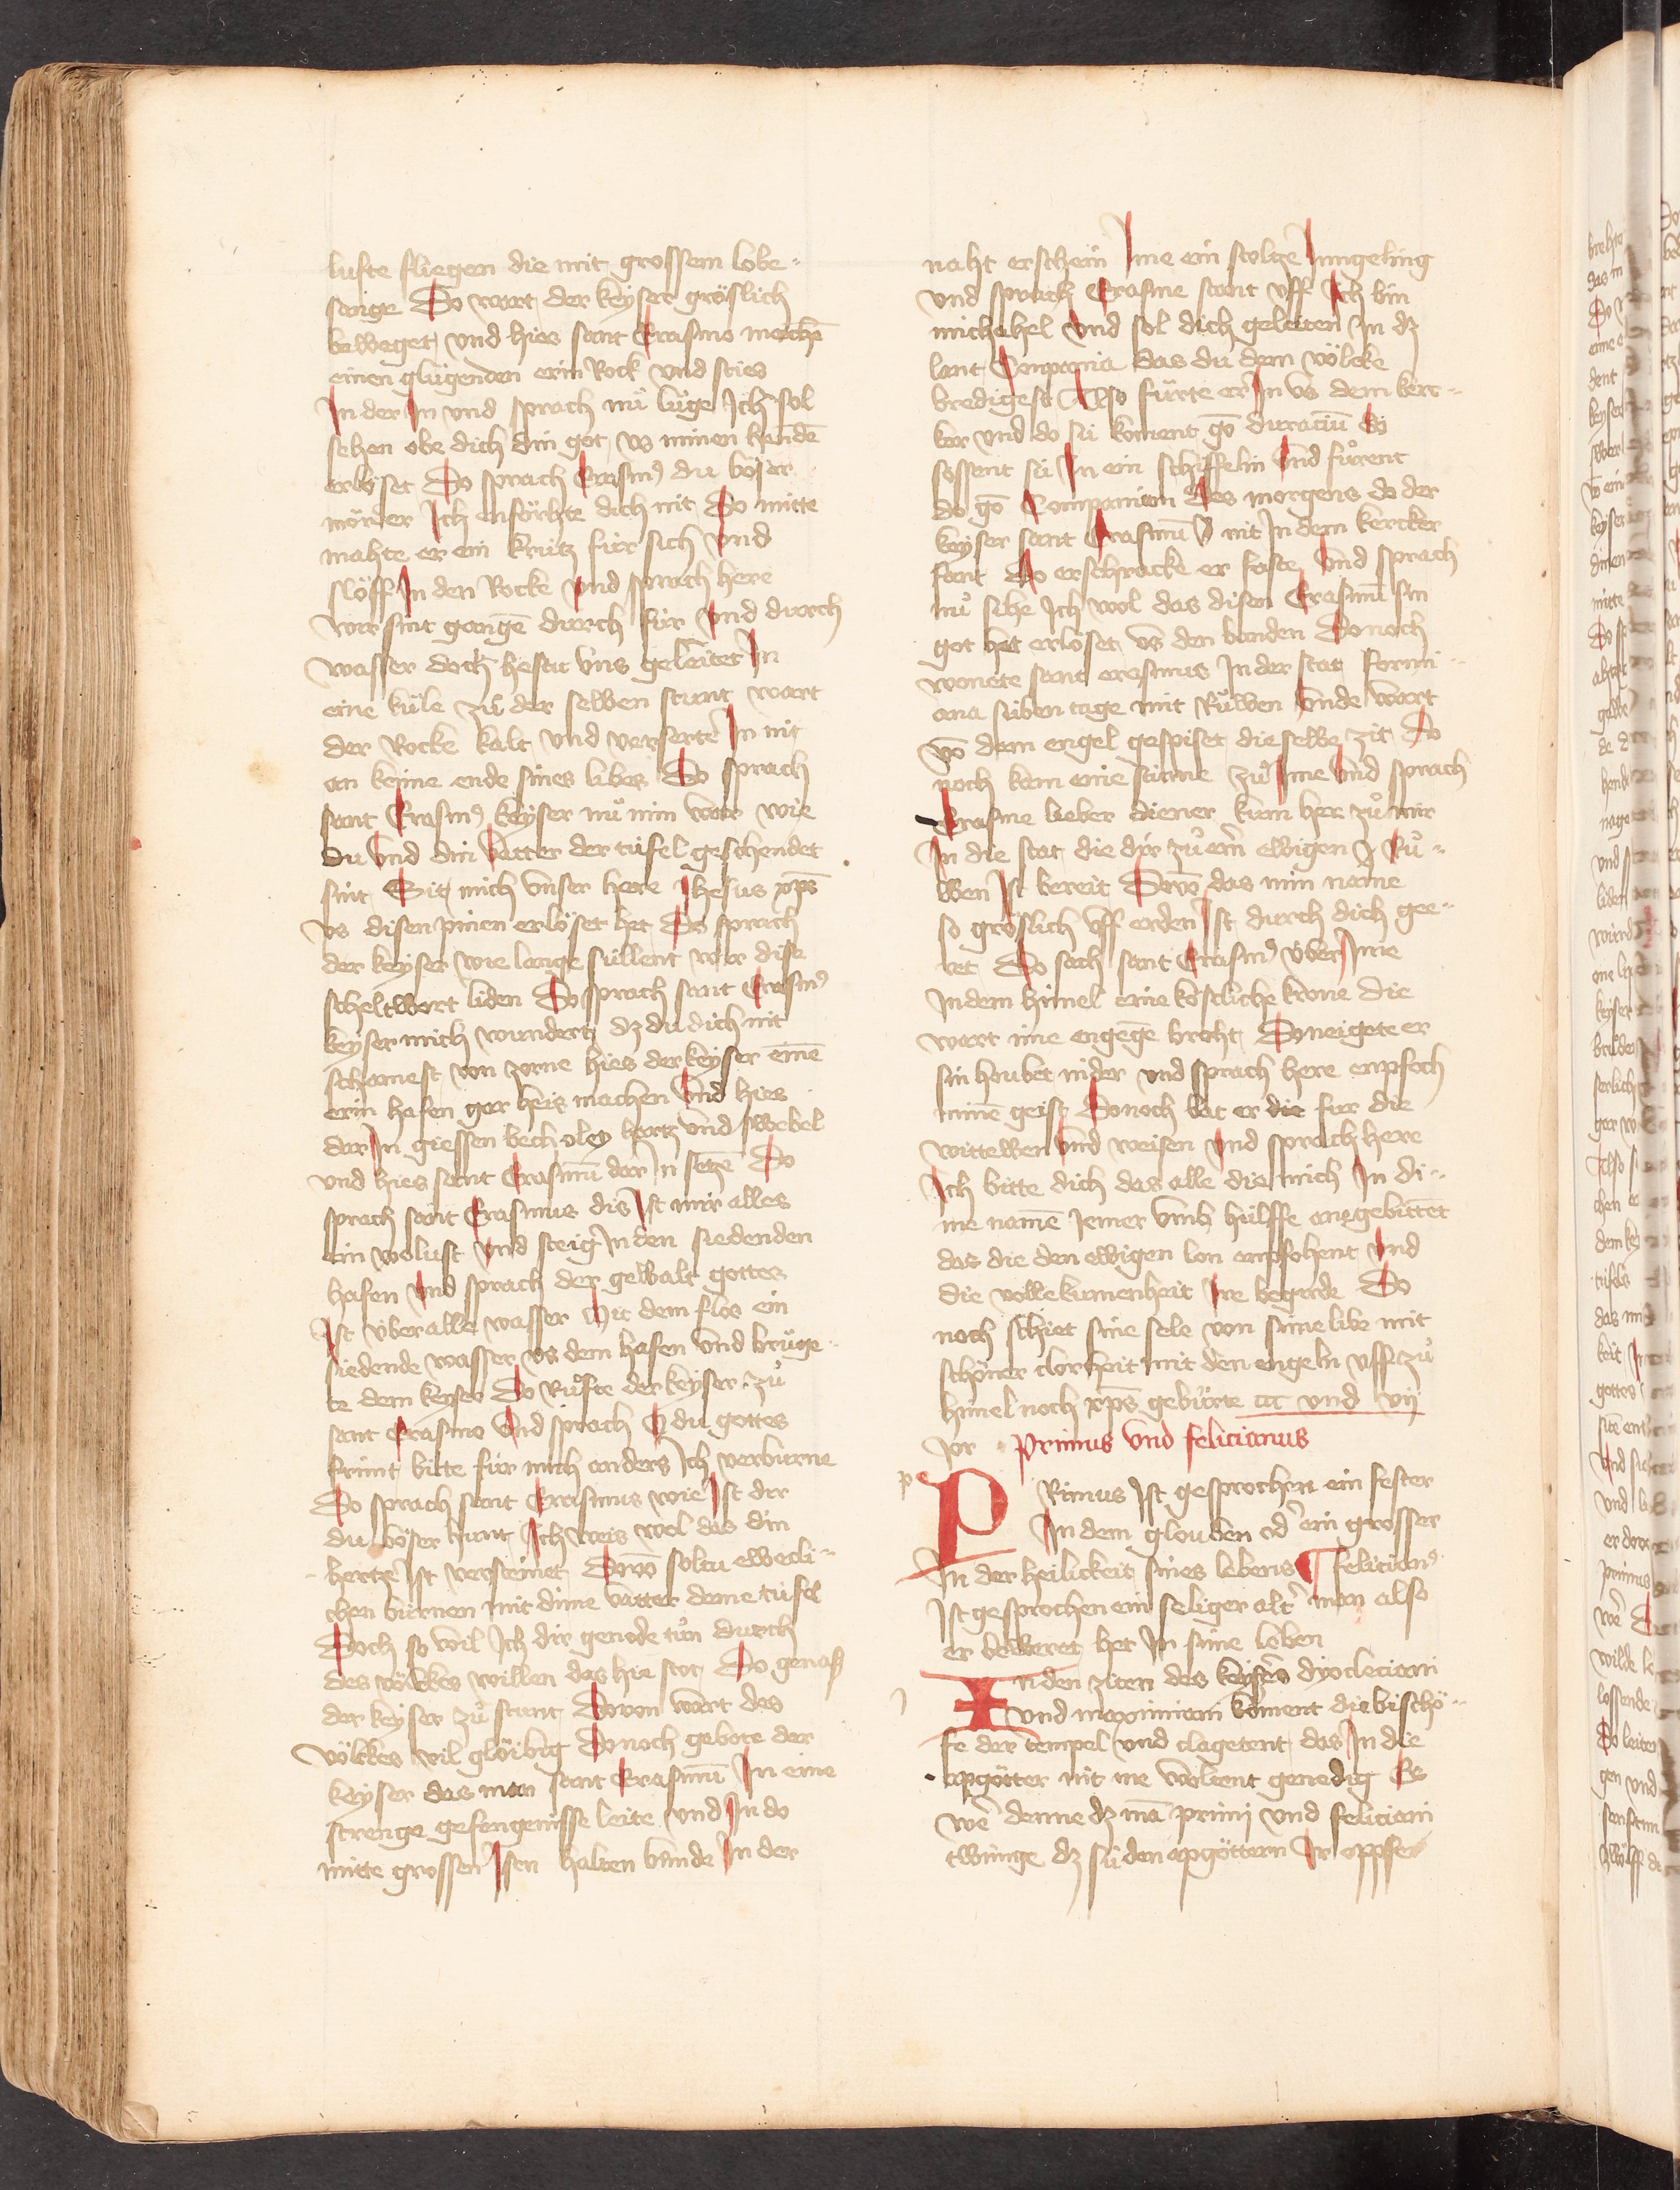 lufte fliegen die mit grossem lobe-
sange Do wart der keyser gröslich
beweget und hies sant Erasmo machē
einen glügenden erin Rock und sties
In der In und sprach nů lůge Ich sol
sehen obe dich din got us minen handē
erlöset Do sprach Erasmꝰ du böser
mörder Ich enförhte dich nit Do mitte
mahte er ein krütz für sich und
slöff In den Rocke und sprach here
wir sint gangē durch für und durch
wasser doch hestu uns geleitet In
eine küle zů der selben stunt wart
der Rocke kalt und verserte In nit
an keime ende sines libes Do sprach
sant Erasmꝰ keyser nů nim war wie
du und din vatter der tüfel geschendet
sint Sit mich unser here Jhesus xp̄s
us disen pinen erlöset het Do sprach
der keyser wie lange süllent wir dise
scheltwort liden Do sprach sant Erasmꝰ
keyser mich wundert dz du dich nit
schamest von zorne hies der keyser einē
erin hafen gar heis machen und hies
dar In giessen bech oley hartz und swebel
und hies sant Erasmū dar In setzē Do
sprach sant Erasmus dis Ist mir alles
ein wolust und steig In den siedenden
hafen und sprach der gewalt gottes
Ist über alle wasser Mit dem flos ein
siedende wasser us dem hafen und brüge-
te dem keyser Do Růfte der keyser zů
sant Erasmo und sprach O du gottes
frünt bitte für mich anders Ich verburne
Do sprach sant Erasmus wie Ist dir
du böser hunt Ich weis wol das din
hertze Ist versteinet Dovō soltu eweckli-
chen burnen mit dime vatter deme tüfel
Doch so wil Ich dir genode tůn durch
des völckes willen das hie stot Do genaß
der keyser zů stunt Dovon wart des
völckes vil glöibig Donoch gebote der
keyser das man sant Erasmū In eine
strenge gefengenisse leite und In do
mitte grossen Isen halten bunde In der
naht erschein Ime ein stoltze Jungeling
und sprach Erasme stant uff Ich bin
michahel und sol dich geleiten In dz
lant Compania das du dem völcke
bredigest Also fürte er In us dem kerc-
ker und do sü koment gō duraciū Do
sossent sü In ein schiffelin und fůrent
do gō Companiam Des morgens do der
keyser sant Erasmū nit In dem kercker
fant Do erschracke er faste und sprach
nů sihe Ich wol das disen Erasmū sin
got het erlöset us den banden Donoch
wonete sant erasmus In der stat formi-
ana siben tage mit Růwen unde wart
vō dem engel gespiset die selbe zit Do
noch kam eine stimme zů Ime und sprach
Erasme lieber diener kum her zů mir
In die stat die dir zů ein̄ ewigen Rů-
wen Ist bereit Dovō das min name
so gröslich uff erden Ist durch dich gee-
ret Do sach sant Erasmꝰ über Ime
In dem himel eine köstliche krone die
wart ime engegē broht Do neigete er
sin houbet nider und sprach here enpfoch
minē geist Donoch bat er die für die
wittewen und weisen und sprach here
Ich bitte dich das alle die mich In di-
me namē Iemer umb hülffe anegebittēt
das die den ewigen lon empfohent und
die vollekumenheit Ire begirde Do
noch schiet sine sele von sime libe mit
schöner clorheit mit den engeln uff zů
himel noch xp̄s gebürte cc und vij
Jor Primus und felicianus
p PRimus Ist gesprochen ein fester
In dem glouben od̄ ein grosser
In der heilickeit sines lebens felicianꝰ
Ist gesprochen ein seliger alt̄ man also
er beweret het In sime leben
In den ziten des keysers dyocleciani
und maximiani koment die bischö-
fe der tempel und clagetent das In die
apgötter nit me woltent genedig Es
wē denne dz mā primi und feliciani
twinge dz sü den apgöttern Ir oppfer